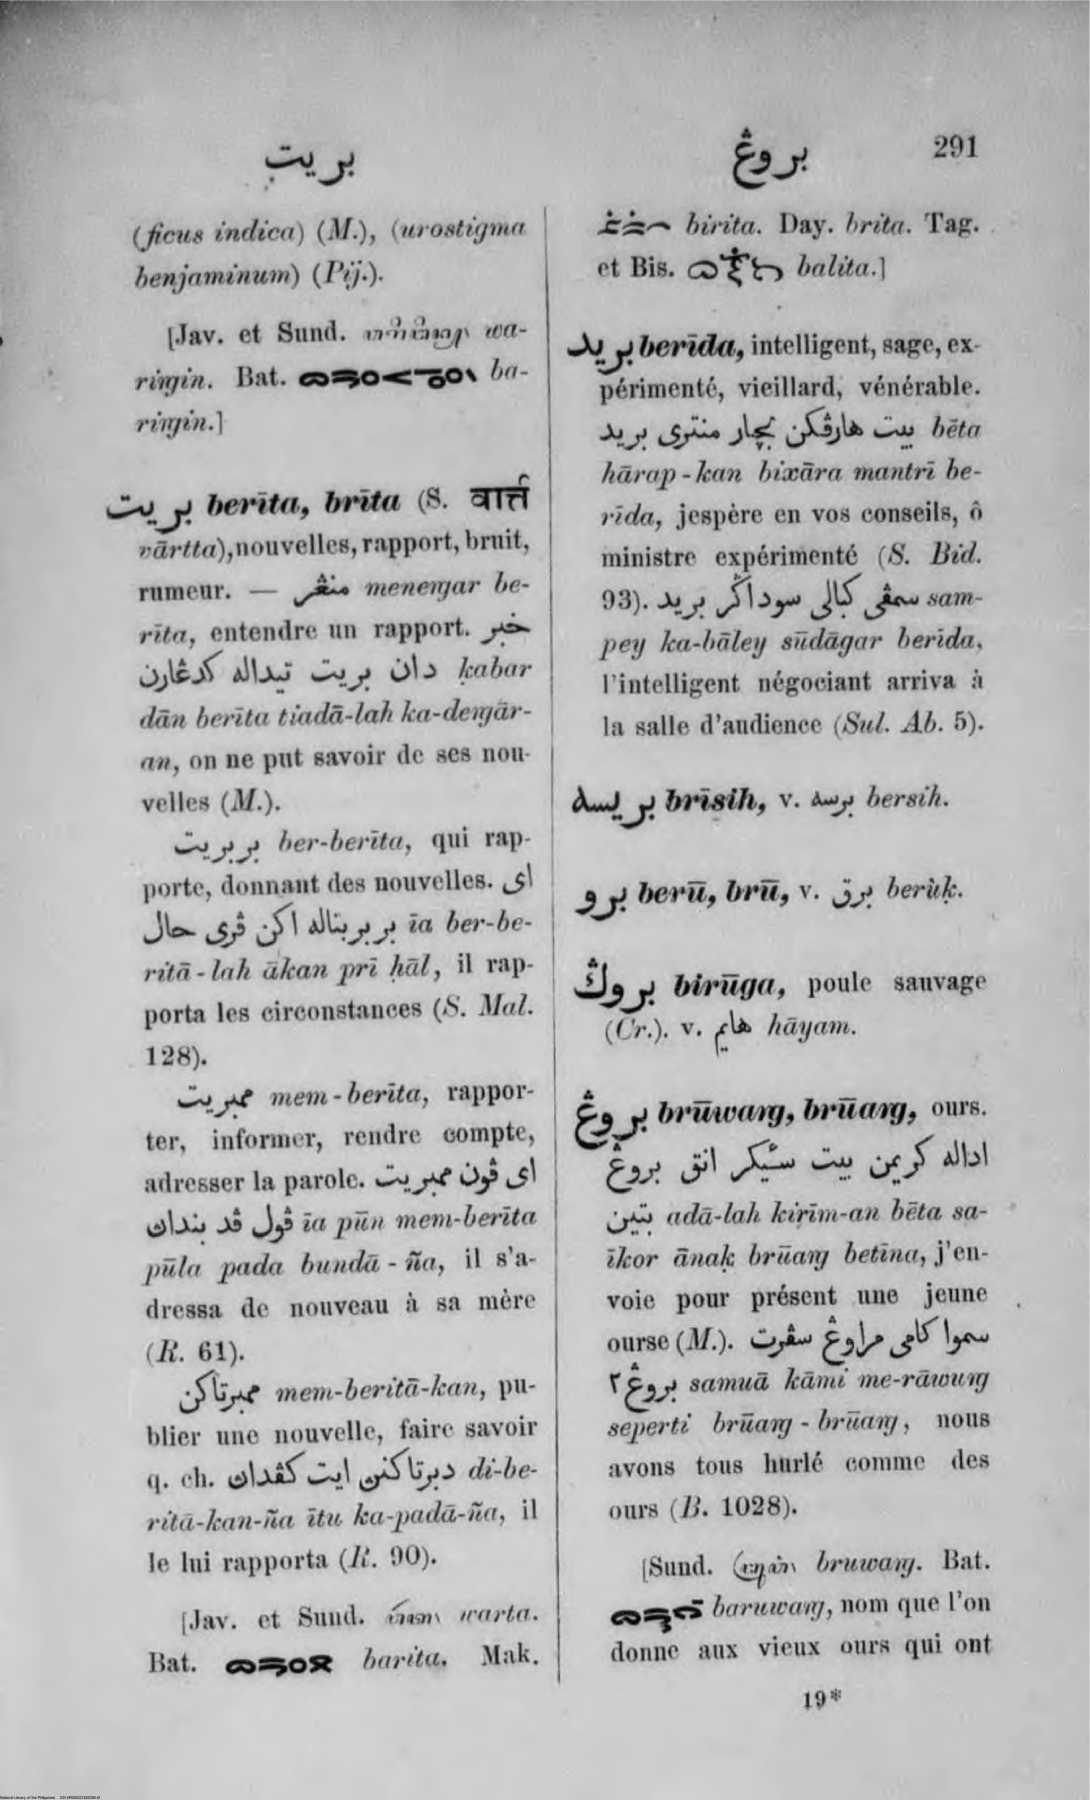 بريت
بروڠ 291
(ficus indica) (M.), (urostigma
benjaminum) (Pij.).
[Jav. et Sund. wa-
riṅgin. Bat. ba-
riṅgin.]
بريت berīta, brīta (S. वार्त्त
vārtta), nouvelles, rapport, bruit,
rumeur. — منڠر meneṅgar be-
rīta, entendre un rapport. خبر
دان بريت تيداله كدڠارن ḳabar
dān berīta tiadā-lah ka-deṅgār-
an, on ne put savoir de ses nou-
velles (M.).
بربريت ber-berīta, qui rap-
porte, donnant des nouvelles. اى
بربريتاله اكن ڤرى حال īa ber-be-
ritā-lah ākan prī ḥāl, il rap-
porta les circonstances (S. Mal.
128).
ممبريت mem-berīta, rappor-
ter, informer, rendre compte,
adresser la parole. اى ڤون ممبريت
ڤول ڤد بنداڽ īa pūn mem-berīta
pūla pada bundā-ña, il s'a-
dressa de nouveau à sa mère
(R. 61).
ممبرتاكن mem-beritā-kan, pu-
blier une nouvelle, faire savoir
q. ch. دبرتاكنڽ ايت كڤداڽ di-be-
ritā-kan-ña ītu ka-padā-ña, il
le lui rapporta (R. 90).
[Jav. et Sund. warta.
Bat. barita. Mak.
birita. Day. brita. Tag.
et Bis. balita.]
بريد berīda, intelligent, sage, ex-
périmenté, vieillard, vénérable.
بيت هارڤكن بچار منترى بريد bēta
hārap-kan bixāra mantrī be-
rīda, jespère en vos conseils, ô
ministre expérimenté (S. Bid.
93). سمڤى كبالى سوداݢر بريد sam-
pey ka-bāley sūdāgar berīda,
l'intelligent négociant arriva à
la salle d'audience (Sul. Ab. 5).
بريسه brīsih, v. برسه bersih.
برو berū, brū, v. برق berùḳ.
بروݢ birūga, poule sauvage
(Cr.). v. هايم hāyam.
بروڠ brūwaṅg, brūaṅg, ours.
اداله كريمن بيت سئيكر انق بروڠ
بتين adā-lah kiṛīm-an bēta sa-
īkor ānaḳ brūaṅg betīna, j'en-
voie pour présent une jeune
ourse (M.). سموا كامى مراوڠ سڤرت
بروڠ٢ samuā kāmi me-rāwuṅg
seperti brūaṅg-brūaṅg, nous
avons tous hurlé comme des
ours (B. 1028).
[Sund. bruwaṅg. Bat.
baruwaṅg, nom que l'on
donne aux vieux ours qui ont
19*